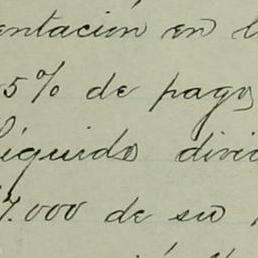 entación en l
5% de pago
líquido divi
7.000 de su